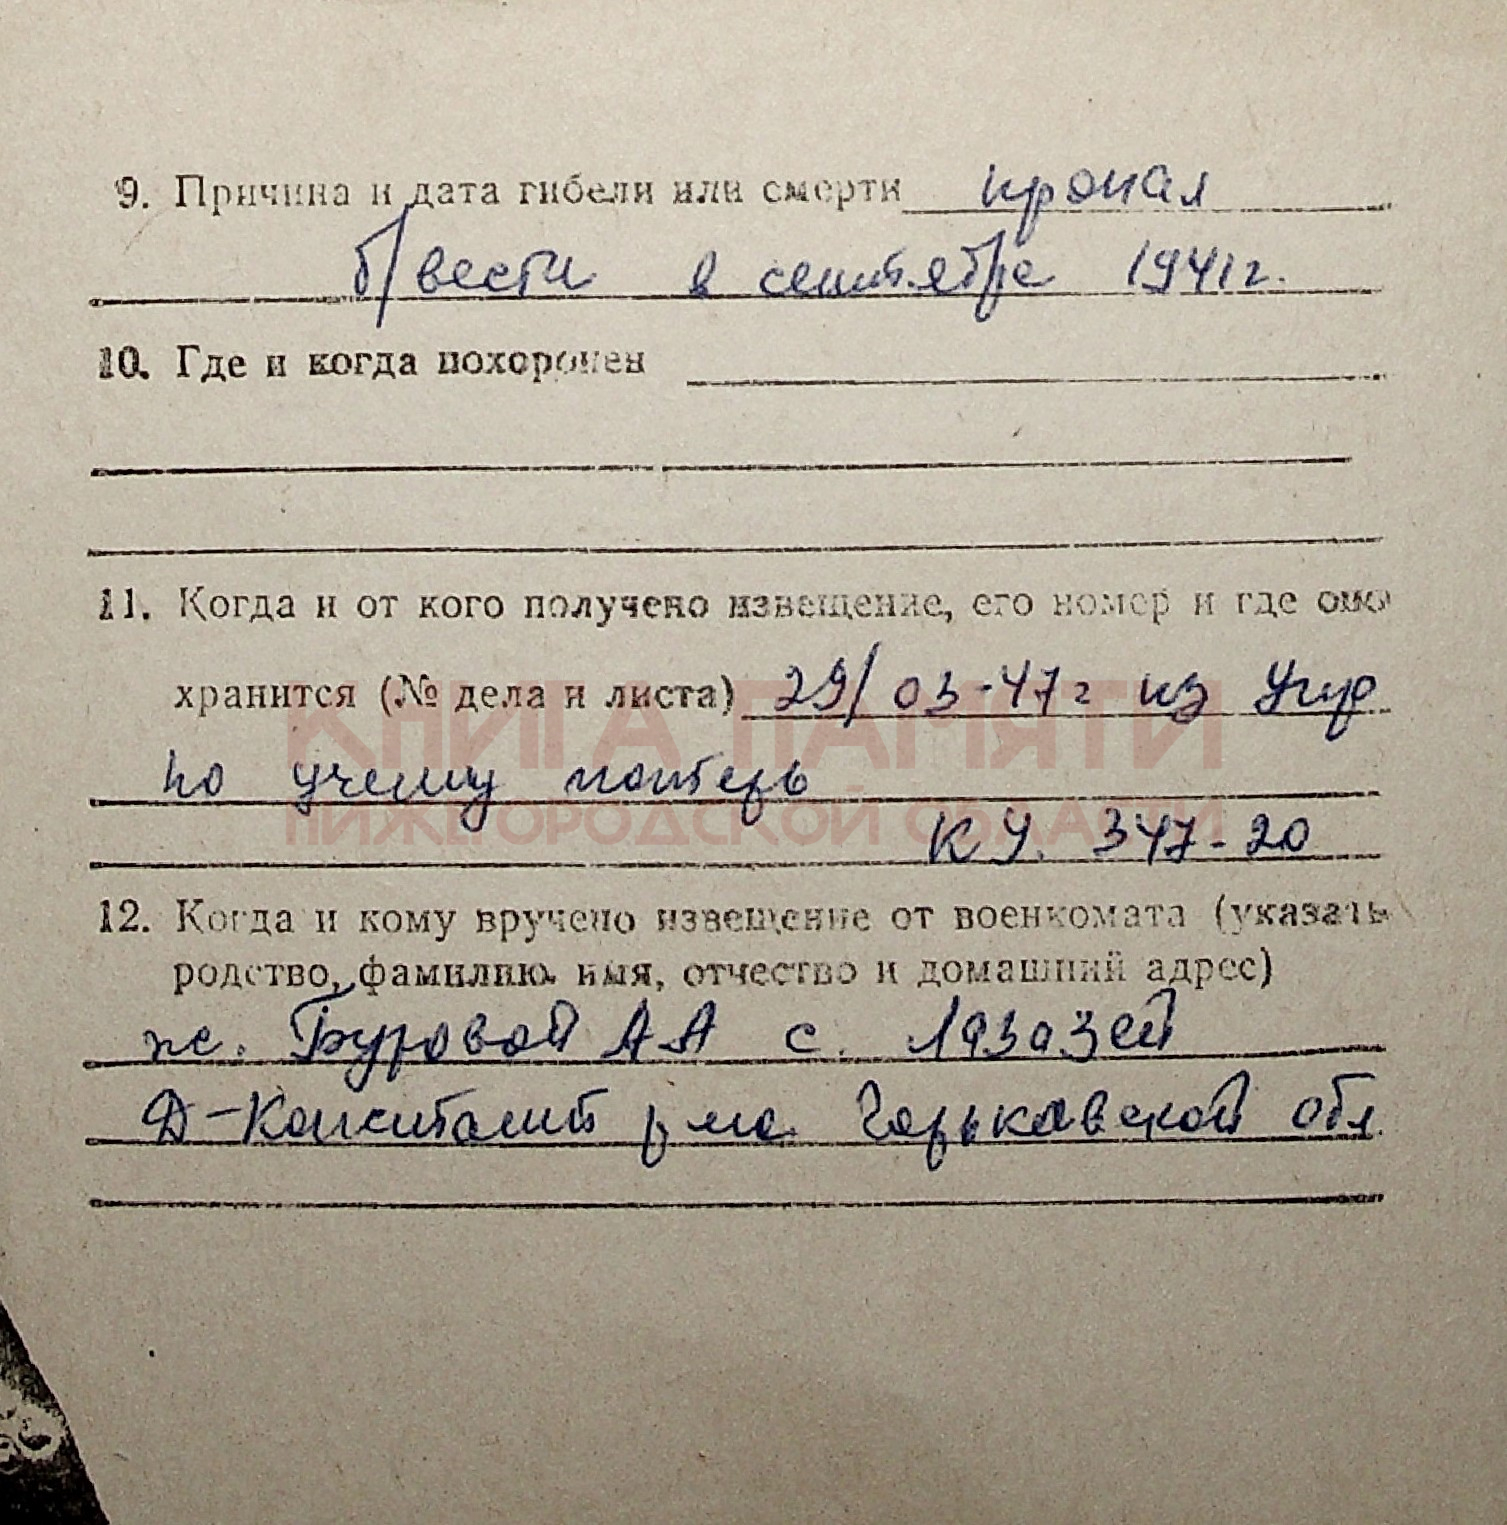 9. Причина и дата гибели или смерти пропал
б/вести в сентябре 1941г.
10. Где и когда похоронен
11. Когда и от кого получено извещение, его номер и где оно
хранится (№ дела и листа) 29/03-47г из Упр
КНИГА ПАМЯТИ
по учету потерь
НИЖЕГОРОДСКОЙ ОБЛАСТИ
КУ. 347-20
12. Когда и кому вручено извещение от военкомата (указать
родство, фамилию, имя, отчество и домашний адрес)
ж. Буровой АА с. Лазазей
Д-Константи р-на Горьковской обл.